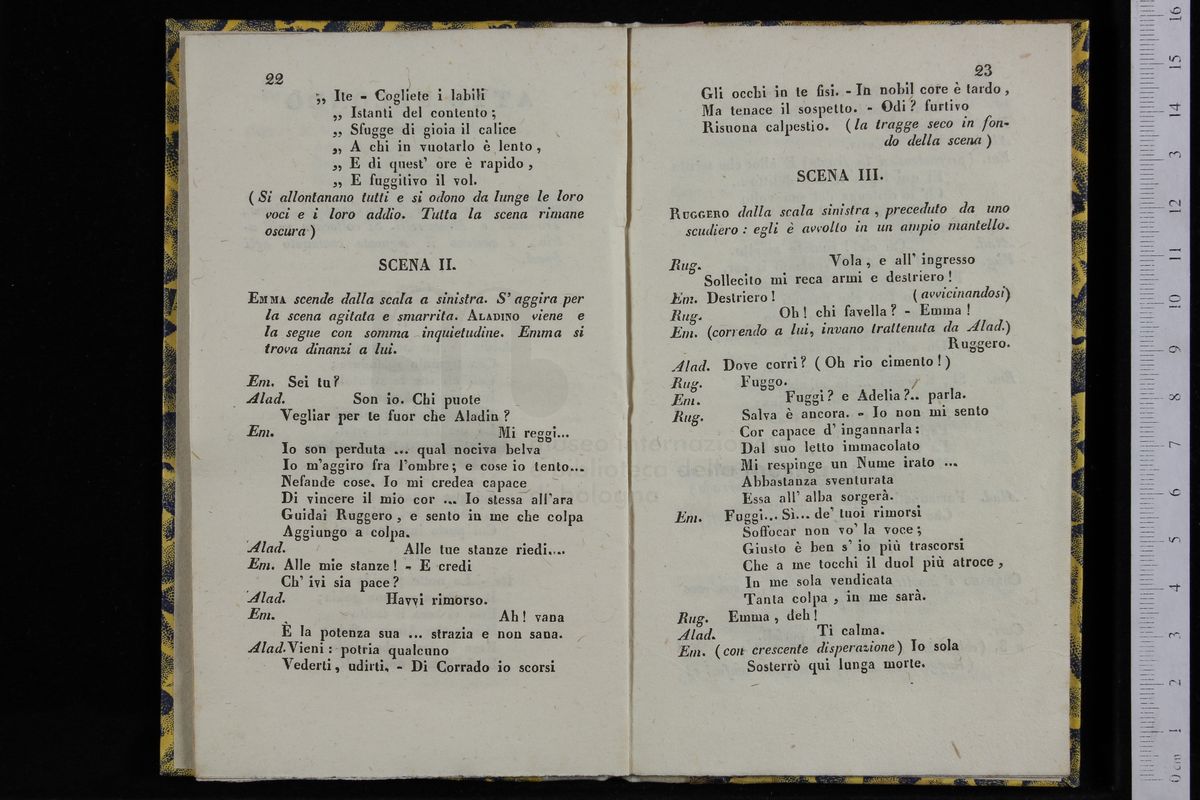 22
„ Ite - Cogliete i labili
„ Istanti del contento ;
„ Sfugge di gioia il calice
„ A chi in vuotarlo è lento ,
„ E di quest' ore è rapido ,
„ E fuggitivo il vol.
( Si allontanano tutti e si odono da lunge le loro
voci e i loro addio. Tutta la scena rimane
oscura )
SCENA II.
EMMA scende dalla scala a sinistra. S' aggira per
la scena agitata e smarrita. ALADINO viene e
la segue con somma inquietudine. Emma si
trova dinanzi a lui.
Em. Sei tu?
Alad. Son io. Chi puote
Vegliar per te fuor che Aladin ?
Em. Mi reggi...
Io son perduta ... qual nociva belva
Io m'aggiro fra l'ombre; e cose io tento...
Nefande cose. Io mi credea capace
Di vincere il mio cor ... Io stessa all'ara
Guidai Ruggero , e sento in me che colpa
Aggiungo a colpa.
Alad. Alle tue stanze riedi....
Em. Alle mie stanze ! - E credi
Ch' ivi sia pace ?
Alad. Havvi rimorso.
Em. Ah ! vana
È la potenza sua ... strazia e non sana.
Alad. Vieni : potria qualcuno
Vederti, udirti. - Di Corrado io scorsi
23
Gli occhi in te fisi. - In nobil core è tardo ,
Ma tenace il sospetto. - Odi ? furtivo
Risuona calpestio. ( la tragge seco in fon-
do della scena )
SCENA III.
RUGGERO dalla scala sinistra , preceduto da uno
scudiero : egli è avvolto in un ampio mantello.
Rug. Vola , e all' ingresso
Sollecito mi reca armi e destriero !
Em. Destriero ! ( avvicinandosi)
Rug. Oh ! chi favella ? - Emma !
Em. (correndo a lui, invano trattenuta da Alad.)
Ruggero.
Alad. Dove corri ? ( Oh rio cimento ! )
Rug. Fuggo.
Em. Fuggi ? e Adelia ?.. parla.
Rug. Salva è ancora. - Io non mi sento
Cor capace d' ingannarla :
Dal suo letto immacolato
Mi respinge un Nume irato ...
Abbastanza sventurata
Essa all' alba sorgerà.
Em. Fuggi... Sì... de' tuoi rimorsi
Soffocar non vo' la voce ;
Giusto è ben s' io più trascorsi
Che a me tocchi il duol più atroce ,
In me sola vendicata
Tanta colpa , in me sarà.
Rug. Emma , deh !
Alad. Ti calma.
Em. ( con crescente disperazione ) Io sola
Sosterrò qui lunga morte.
museo internazionale
biblioteca della
di bologna
0 cm 1 2 3 4 5 6 7 8 9 10 11 12 13 14 15 16